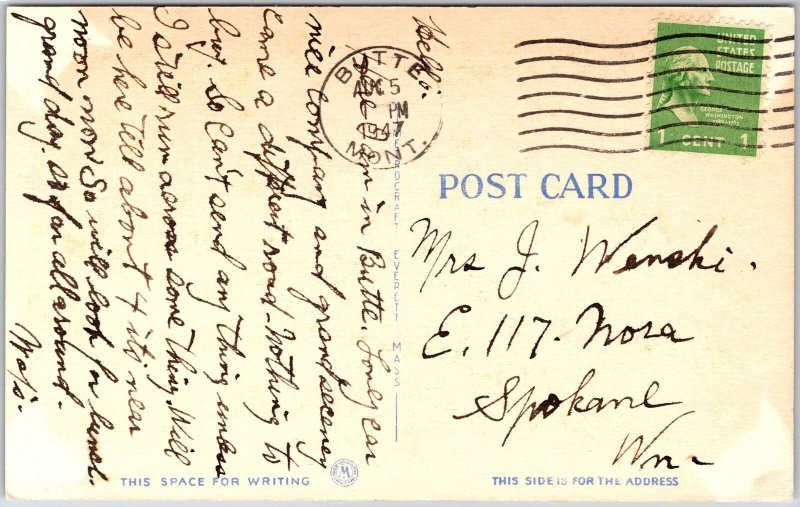 Hello.
Here I am in Butte. Lovely car
nice company and grand scenery
came a different road - Nothing to
buy. So can't send any thing unless
I still run across some thing. Will
be here till about 4 its near
noon now So will look for lunch.
grand day so far all around.
BUTTE
5
PM
1947
MONT.
UNITED
STATES
POSTAGE
GEORGE
WASHINGTON
1 CENT 1
POST CARD
Mrs J. Wenski.
E. 117. Nora
Spokane
Wn
EVERETT MASS
THIS SPACE FOR WRITING
M
THIS SIDE IS FOR THE ADDRESS